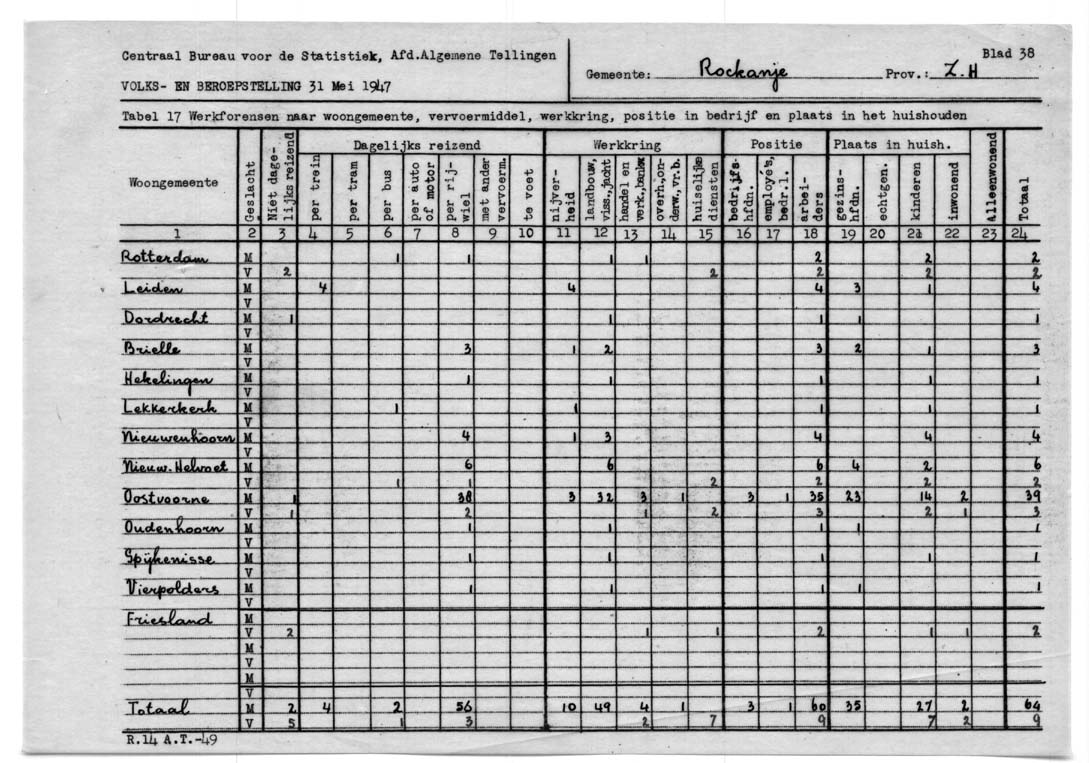 Centraal Bureau voor de Statistiek, Afd.Algemene Tellingen
VOLKS- EN BEROEPSTELLING 31 Mei 1947
Gemeente: Rockanje Prov.: Z.H
Blad 38
Tabel 17 Werkforensen naar woongemeente, vervoermiddel, werkkring, positie in bedrijf en plaats in het huishouden
Woongemeente Geslacht Niet dage-lijks reizend Dagelijks reizend Werkkring Positie Plaats in huish. Alleenwonend Totaal
per trein per tram per bus per auto of motor per rij-wiel met ander vervoerm. te voet nijver-heid landbouw, viss.,jacht handel en verk.,bankw overh.,on-derw.,vr.b. huiselijke diensten bedrijfs-hfdn. employé's, bedr.l. arbei-ders gezins-hfdn. echtgen. kinderen inwonend
1 2 3 4 5 6 7 8 9 10 11 12 13 14 15 16 17 18 19 20 21 22 23 24
Rotterdam M 1 1 1 1 2 2 2
V 2 2 2 2 2
Leiden M 4 4 4 3 1 4
V
Dordrecht M 1 1 1 1 1
V
Brielle M 3 1 2 3 2 1 3
V
Hekelingen M 1 1 1 1 1
V
Lekkerkerk M 1 1 1 1 1
V
Nieuwenhoorn M 4 1 3 4 4 4
V
Nieuw.Helvoet M 6 6 6 4 2 6
V 1 1 2 2 2 2
Oostvoorne M 1 38 3 32 3 1 3 1 35 23 14 2 39
V 1 2 1 2 3 2 1 3
Oudenhoorn M 1 1 1 1 1
V
Spijkenisse M 1 1 1 1 1
V
Vierpolders M 1 1 1 1 1
V
Friesland M
V 2 1 1 2 1 1 2
M
V
M
V
Totaal M 2 4 2 56 10 49 4 1 3 1 60 35 27 2 64
V 5 1 3 2 7 9 7 2 9
R.14 A.T.-49